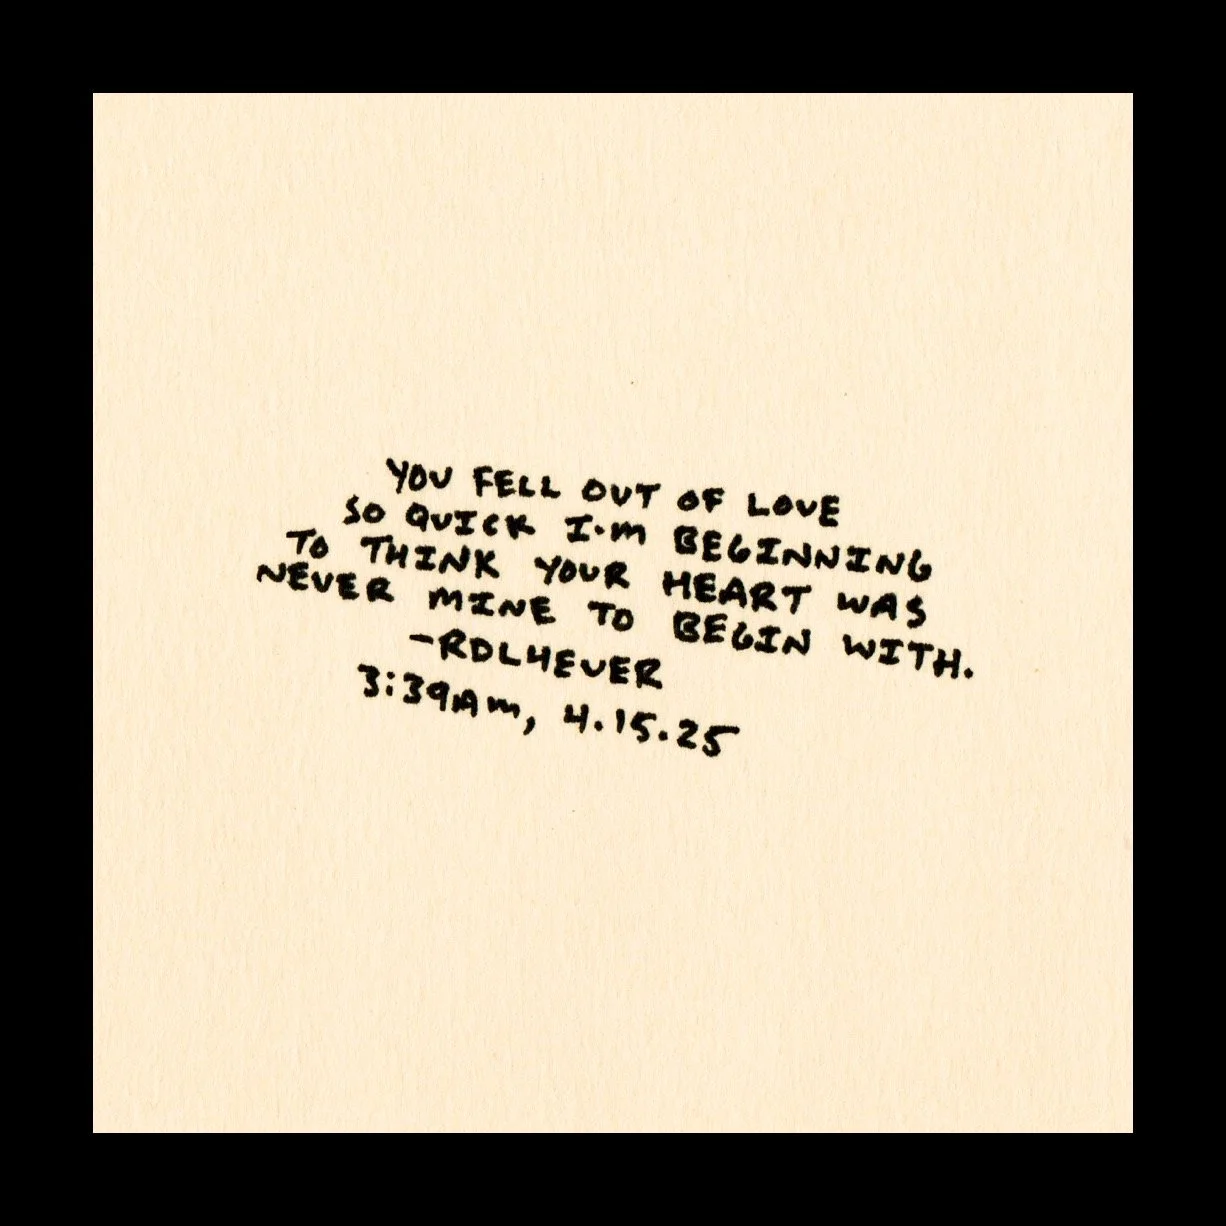 YOU FELL OUT OF LOVE
SO QUICK I·M BEGINNING
TO THINK YOUR HEART WAS
NEVER MINE TO BEGIN WITH.
-RDLHEVER
3:39AM, 4.15.25